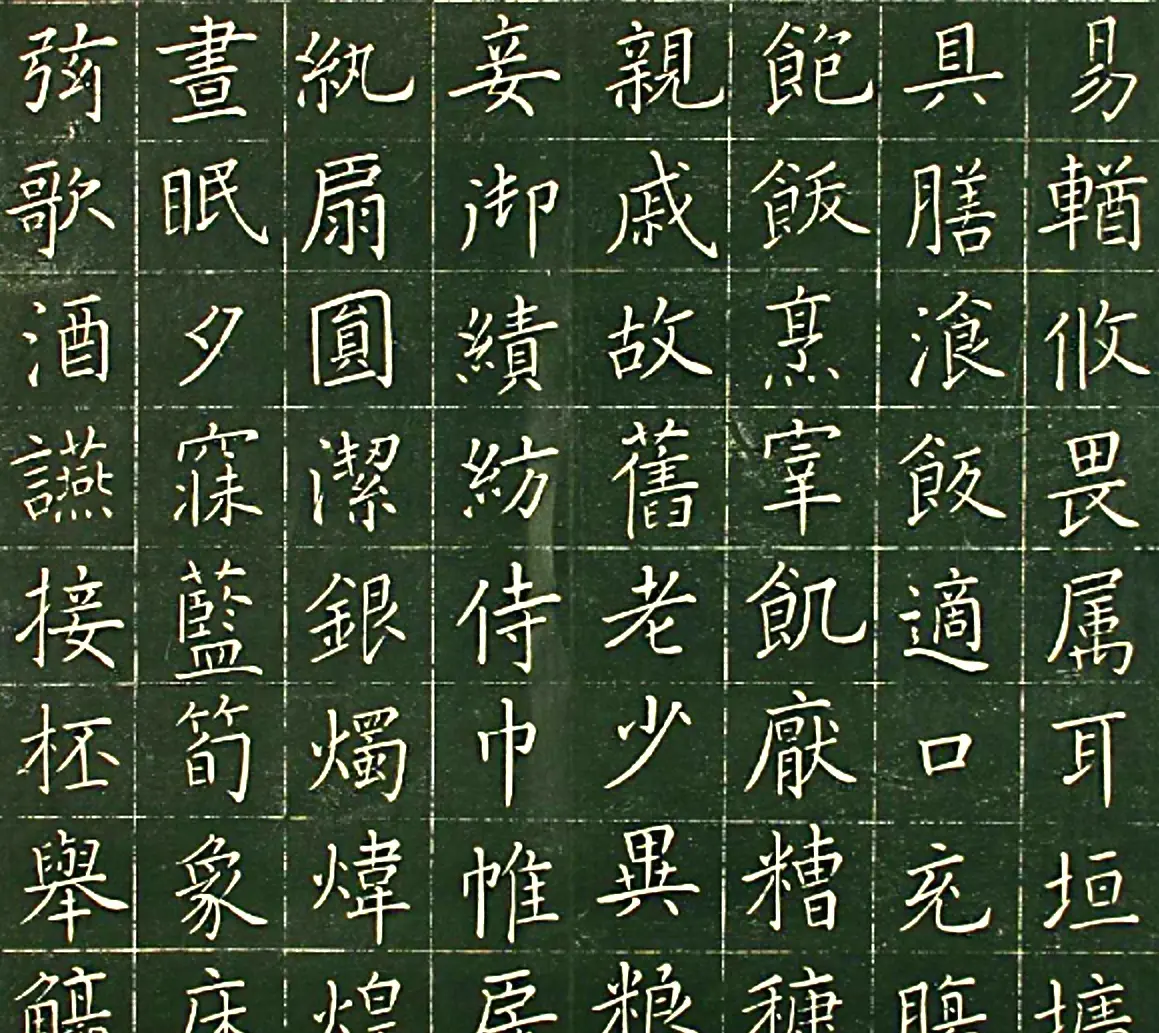 易輶攸畏属耳垣墻
具膳湌飯適口充膓
飽飫烹宰飢厭糟糠
親戚故舊老少異粮
妾御績紡侍巾帷房
紈扇圓潔銀燭煒煌
晝眠夕寐藍筍象床
弦歌酒讌接柸舉觴